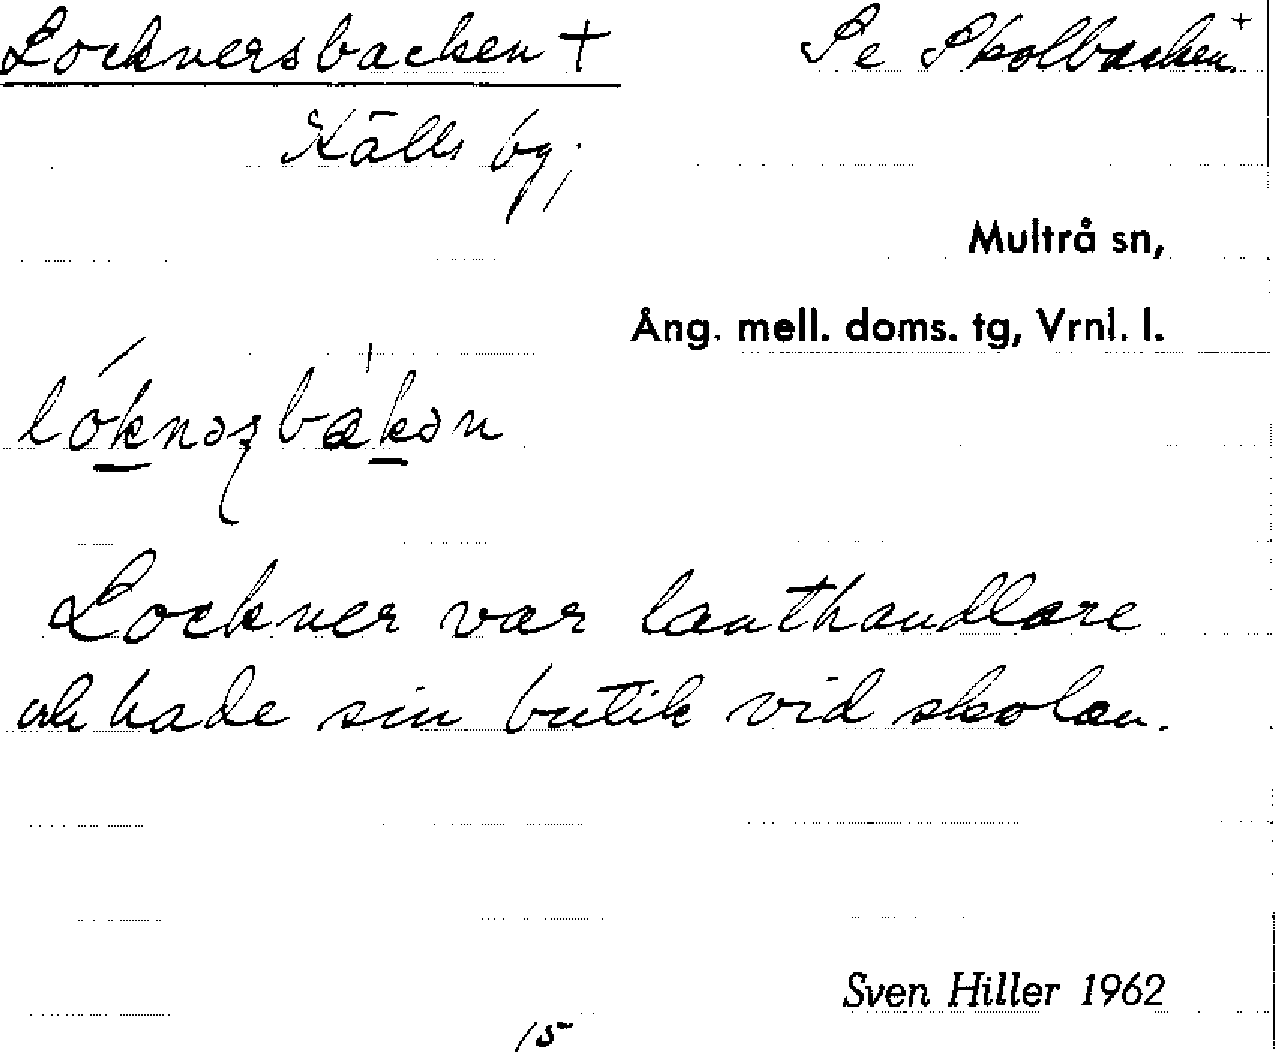 Locknersbacken + Se Skolbacken +
Källs by,
Multrå sn,
Ång. mell. doms. tg, Vrnl. l.
lóknəʂbakən
Lockner var lanthandlare
och hade sin butik vid skolan.
Sven Hiller 1962
15